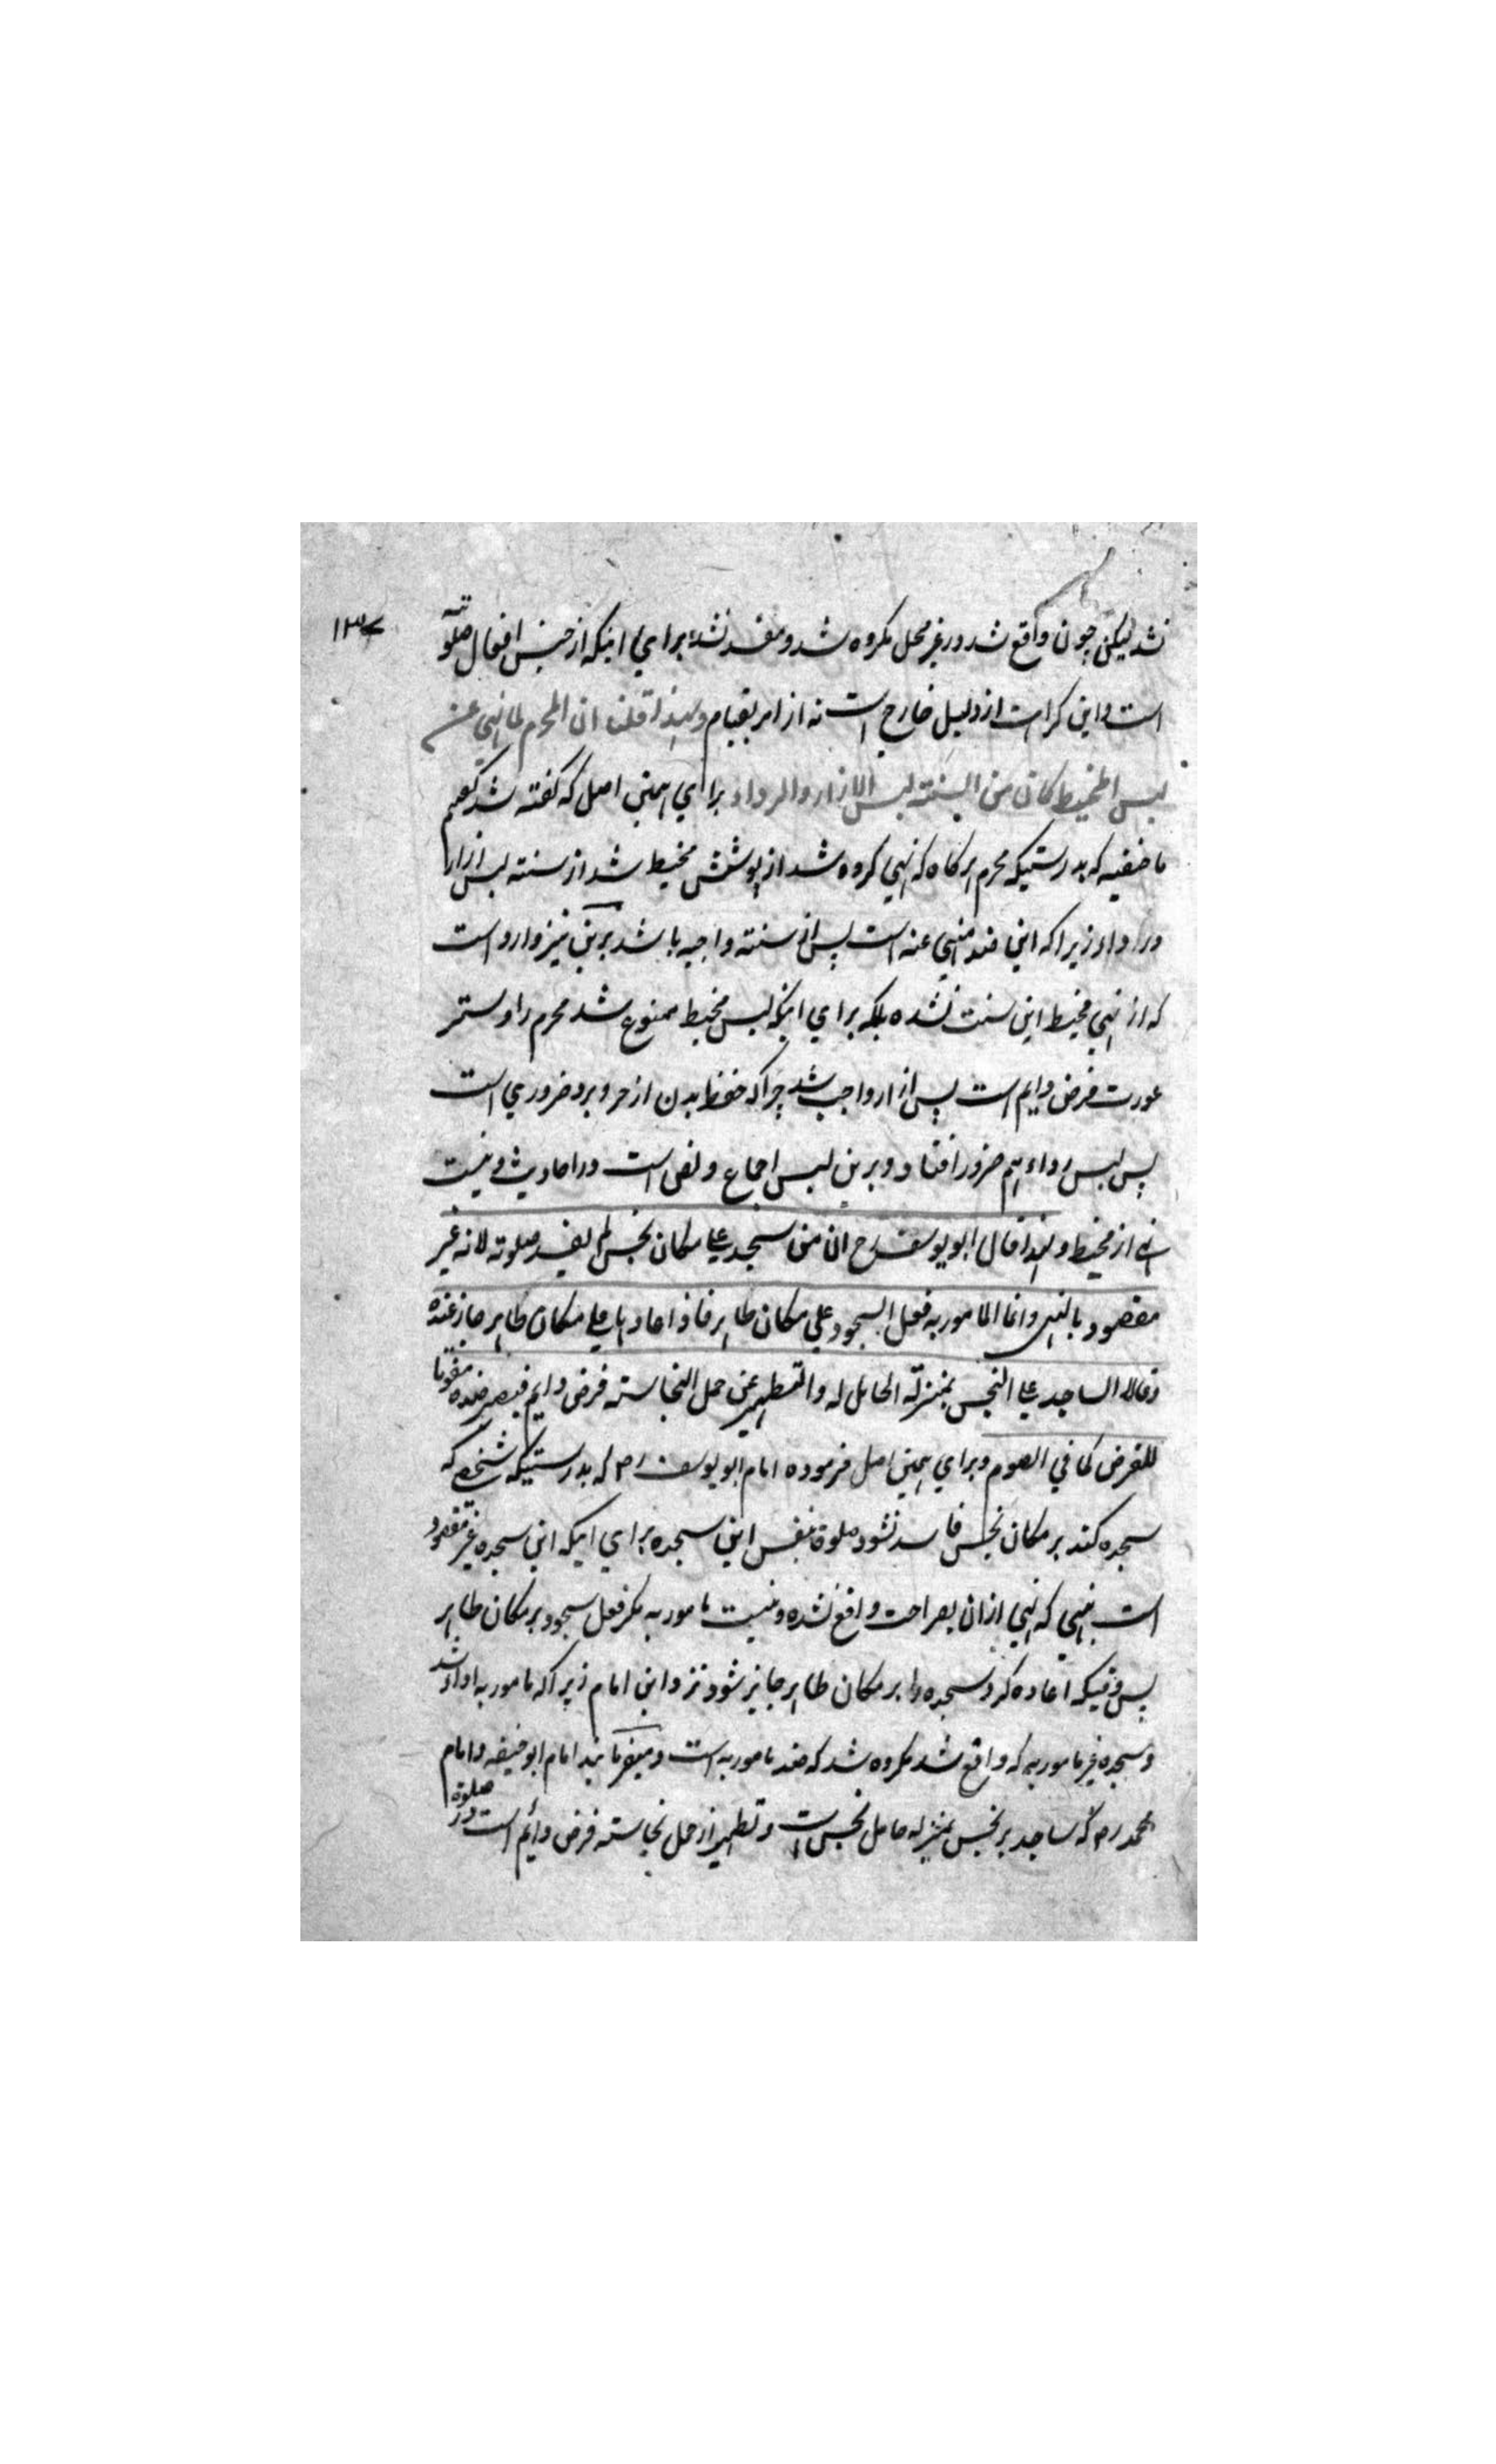 ۱۳۷
نشد لیکن چون واقع شد در غیر محل مکروه شد و مفسد نشد برای اینکه از جنس افعال صلوة
است و این کراهت از دلیل خارج است نه از امر بقیام ولهذا قلنا ان المحرم لما نهي عن
لبس المخیط کان من السنته لبس الازار والرداء برای همین اصل که گفته شد گفتیم
ما حنفیه که بدرستیکه محرم هرکاه که نهی کرده شد از پوشش مخیط شد از سنته لبس ازار
و رداء زیرا که این ضد منهی عنه است پس این سنته واجبه باشد برین نیز وارد است
که از نهی مخیط این سنت نشده بلکه برای اینکه لبس مخیط ممنوع شد محرم را و ستر
عورت فرض دایم است پس ازار واجب شد چرا که حفظ بدن از حر و برد ضروری است
پس لبس رداء هم ضرور افتاد و برین لبس اجماع و نص است در احادیث و نیست
از مخیط ولهذا قال ابو یوسف رح ان من سجد علی مکان نجس لم یفسد صلوته لانه غیر
مقصود بالنهی وانما المامور به فعل السجود علي مکان طاهر فاذا اعادها علی مکان طاهر جاز عنده
وقالا الساجد علی النجس بمنزلة الحامل له والتطهیر عن حمل النجاسته فرض دایم فیصیر ضده مفوتا
للفرض کما في الصوم و برای همین اصل فرموده امام ابو یوسف رح که بدرستیکه شخصی که
سجده کند بر مکان نجس فاسد نشود صلوة بنفس این سجده برای اینکه این سجده غیر مقصود
است بنهی که نهی ازان بصراحت واقع نشده و نیست مامور به مگر فعل سجود بر مکان طاهر
پس وقتیکه اعاده کرد سجده را بر مکان طاهر جایز شود نزد این امام زیرا که مامور به ادا شد
و سجده غیر مامور به که واقع شد مکروه شد که ضد مامور به است و میفرمایند امام ابو حنیفه و امام
محمد رح که ساجد بر نجس بمنزله حامل نجس است و تطهیر از حمل نجاسته فرض دائم است در صلوة